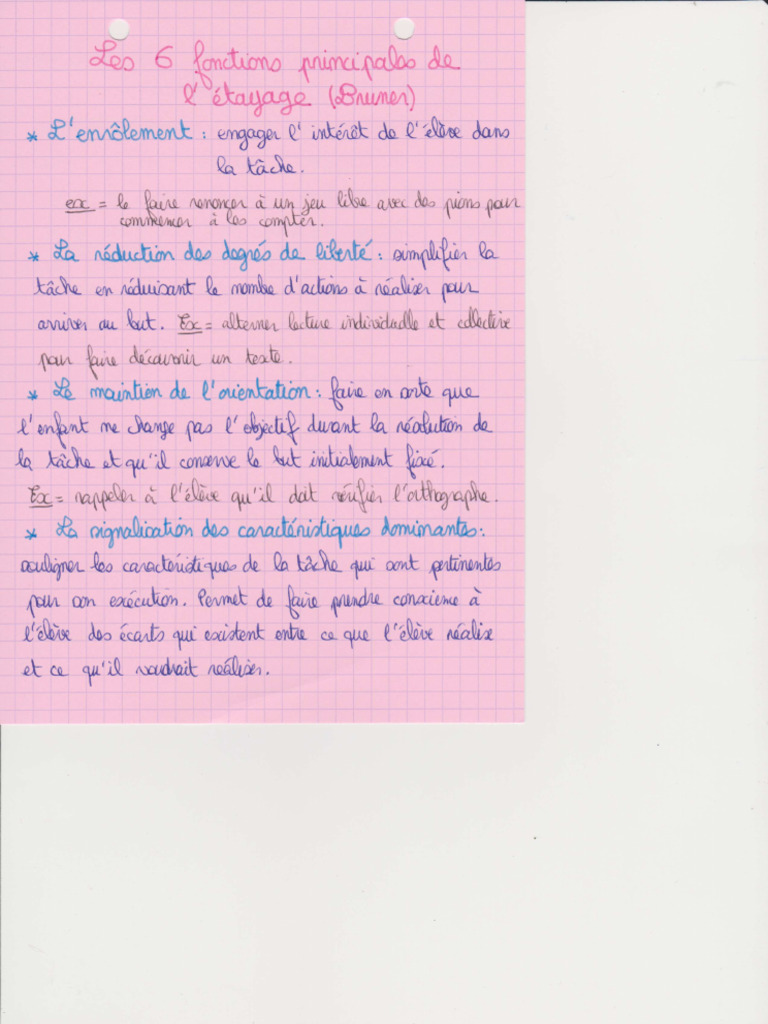 Les 6 fonctions principales de
l'étayage (Bruner)
* L'enrôlement : engager l'intérêt de l'élève dans
la tâche.
ex = le faire renoncer à un jeu libre avec des pions pour
commencer à les compter.
* La réduction des degrés de liberté : simplifier la
tâche en réduisant le nombre d'actions à réaliser pour
arriver au but. Ex = alterner lecture individuelle et collective
pour faire découvrir un texte.
* Le maintien de l'orientation : faire en sorte que
l'enfant ne change pas l'objectif durant la résolution de
la tâche et qu'il conserve le but initialement fixé.
Ex = rappeler à l'élève qu'il doit vérifier l'orthographe.
* La signalisation des caractéristiques dominantes :
souligner les caractéristiques de la tâche qui sont pertinentes
pour son exécution. Permet de faire prendre conscience à
l'élève des écarts qui existent entre ce que l'élève réalise
et ce qu'il voudrait réaliser.